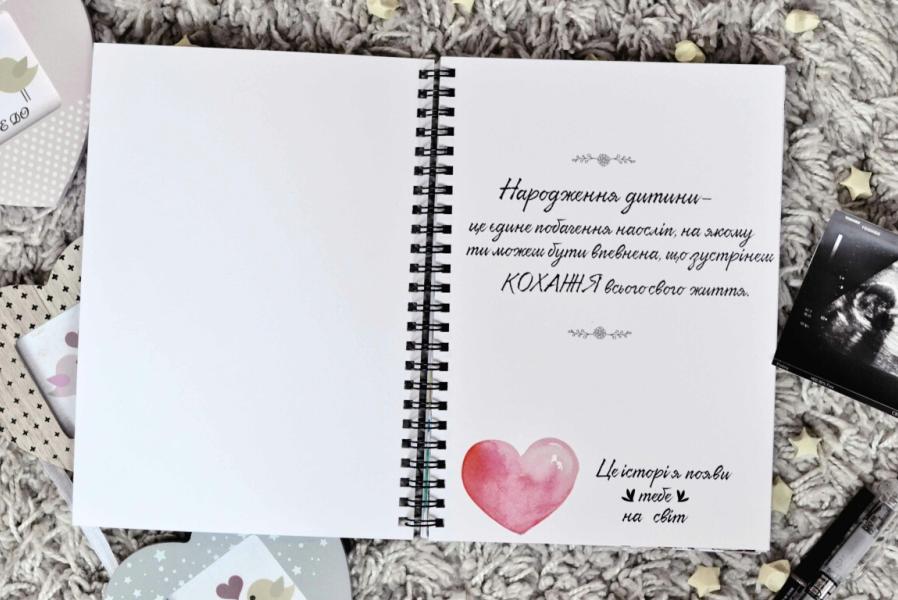 Народження дитини–
це єдине побачення наосліп, на якому
ти можеш бути впевнена, що зустрінеш
КОХАННЯ всього свого життя.
Це історія появи
тебе
на світ